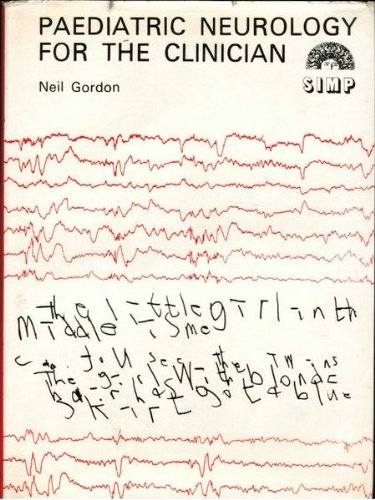 PAEDIATRIC NEUROLOGY
FOR THE CLINICIAN
Neil Gordon
SIMP
the littlegirlinth
Middle is me
you see the TWins
The blonde
hair has got a blue
skirt